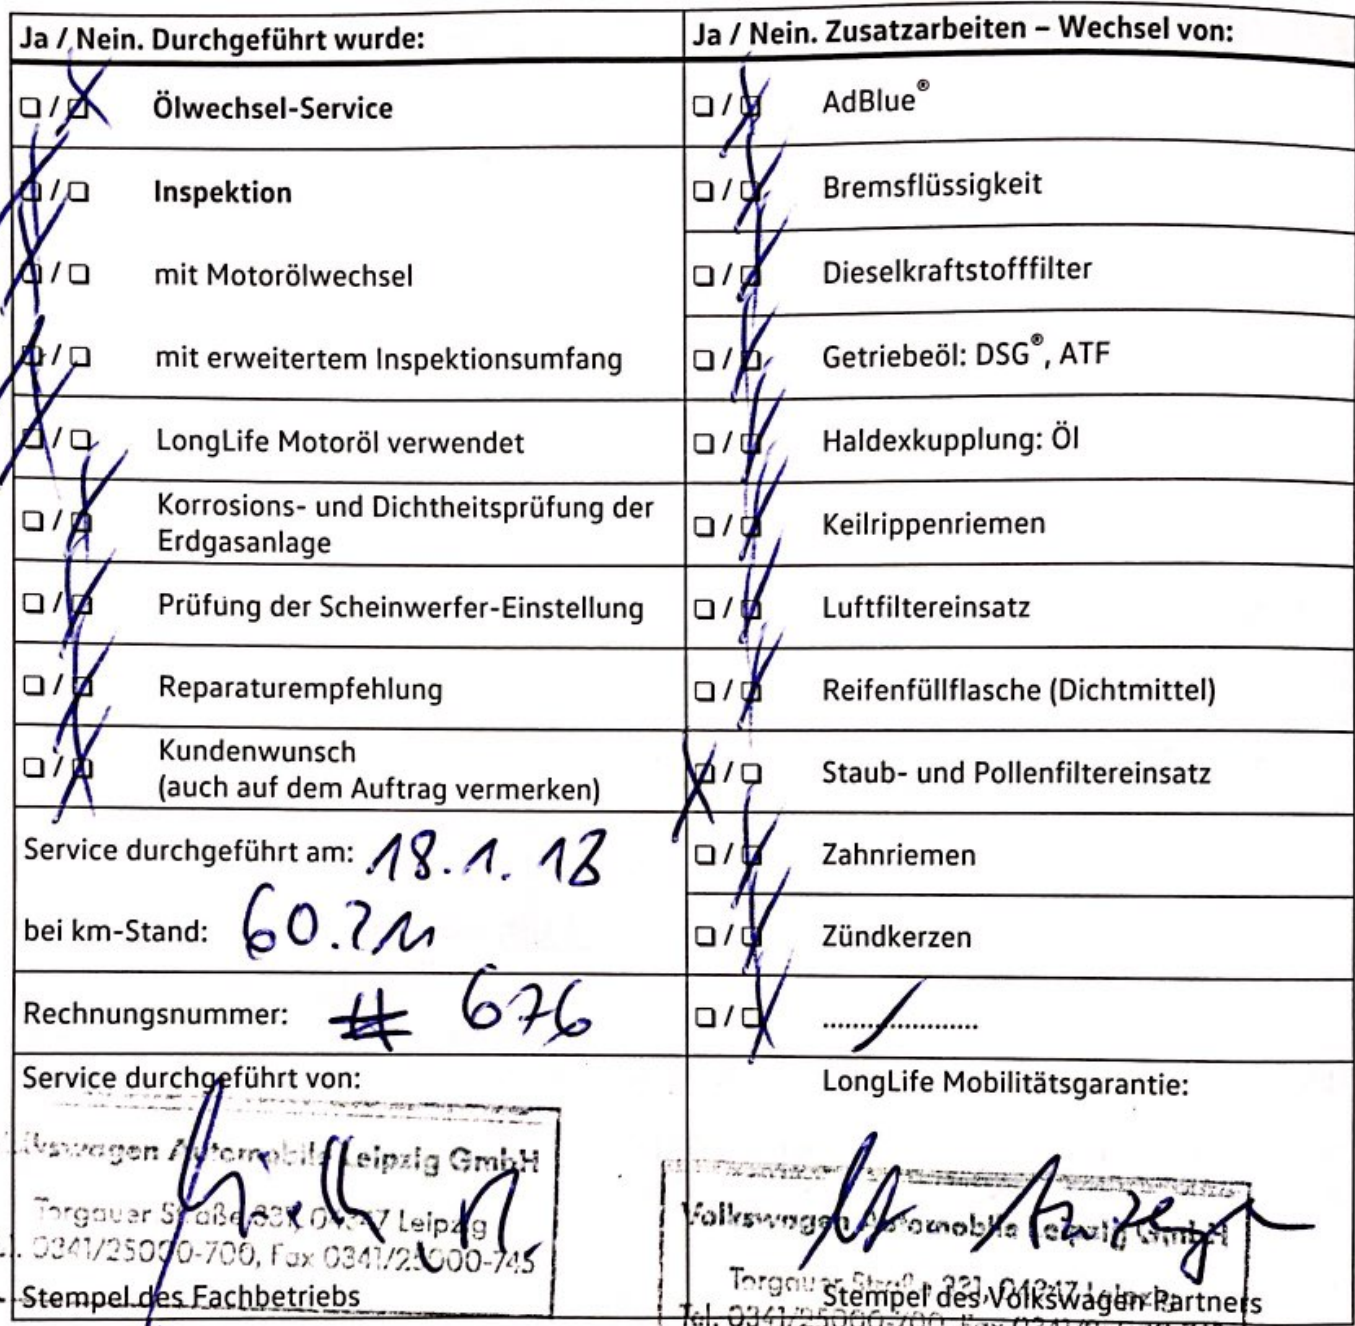 Ja / Nein. Durchgeführt wurde:
Ölwechsel-Service
Inspektion
mit Motorölwechsel
mit erweitertem Inspektionsumfang
LongLife Motoröl verwendet
Korrosions- und Dichtheitsprüfung der
Erdgasanlage
Prüfung der Scheinwerfer-Einstellung
Reparaturempfehlung
Kundenwunsch
(auch auf dem Auftrag vermerken)
Service durchgeführt am: 18.1.18
bei km-Stand:
Rechnungsnummer: # 676
Service durchgeführt von:
Automobile Leipzig GmbH
Torgauer Straße Leipzig
0341/25000-700, Fax 0341/25000-745
Stempel des Fachbetriebs
Ja / Nein. Zusatzarbeiten – Wechsel von:
AdBlue®
Bremsflüssigkeit
Dieselkraftstofffilter
Getriebeöl: DSG®, ATF
Haldexkupplung: Öl
Keilrippenriemen
Luftfiltereinsatz
Reifenfüllflasche (Dichtmittel)
Staub- und Pollenfiltereinsatz
Zahnriemen
Zündkerzen
....................
LongLife Mobilitätsgarantie:
Volkswagen Automobile Leipzig GmbH
Torgauer
Stempel des Volkswagen Partners
Tel.